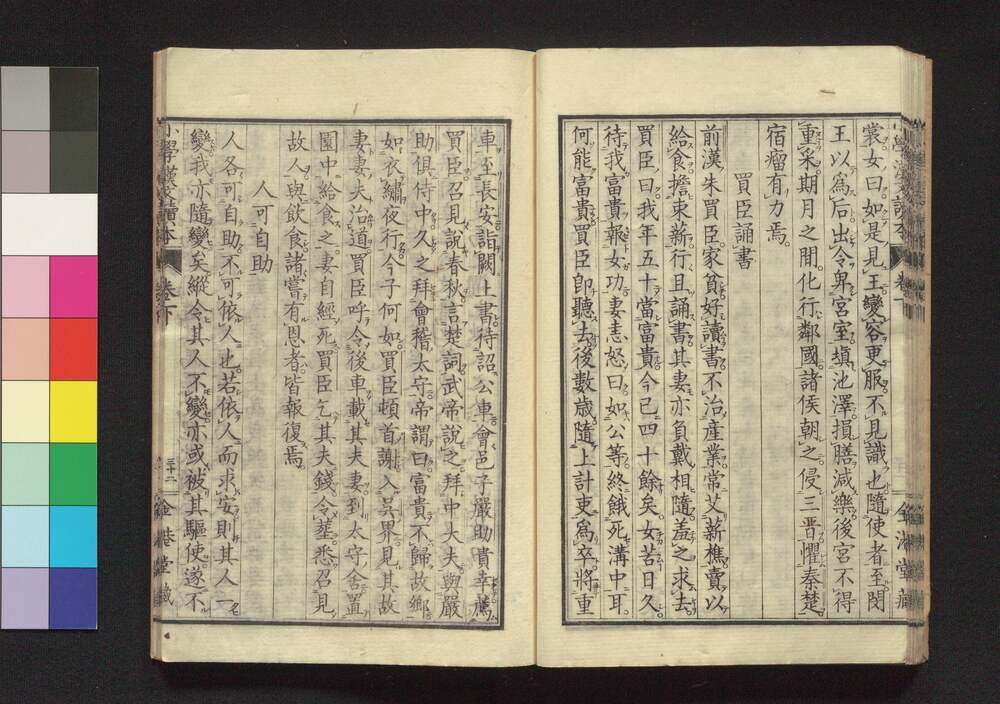 裳女曰如是見王變容更服不見識也隨使者至閔
王以為后出令卑宮室塡池澤損膳減樂後宮不得
重采期月之閒化行鄰國諸侯朝之侵三晋懼秦楚
宿瘤有力焉
買臣誦書
前漢朱買臣家貧好讀書不治産業常艾薪樵賣以
給食擔束薪行且誦書其妻亦負戴相隨羞之求去
買臣曰我年五十當富貴今已四十餘矣女苦日久
待我富貴報女功妻恚怒曰如公等終餓死溝中耳
何能富貴買臣卽聽去後數歲隨上計吏爲卒將重
車至長安詣闕上書待詔公車會邑子嚴助貴幸薦
買臣召見說春秋言楚詞武帝說之拜中大夫與嚴
助俱侍中久之拜會稽太守帝謂曰富貴不歸故鄉
如衣繡夜行今子何如買臣頓首謝入吳界見其故
妻妻夫治道買臣呼令後車載其夫妻到太守舍置
園中給食之妻自經死買臣乞其夫錢令葬悉召見
故人與飲食諸嘗有恩者皆報復焉
人可自助
人各可自助不可依人也若依人而求安則其人一
變我亦隨變矣縱令其人不變亦或被其驅使遂不
小學漢文讀本 卷下 三十二 金港堂藏